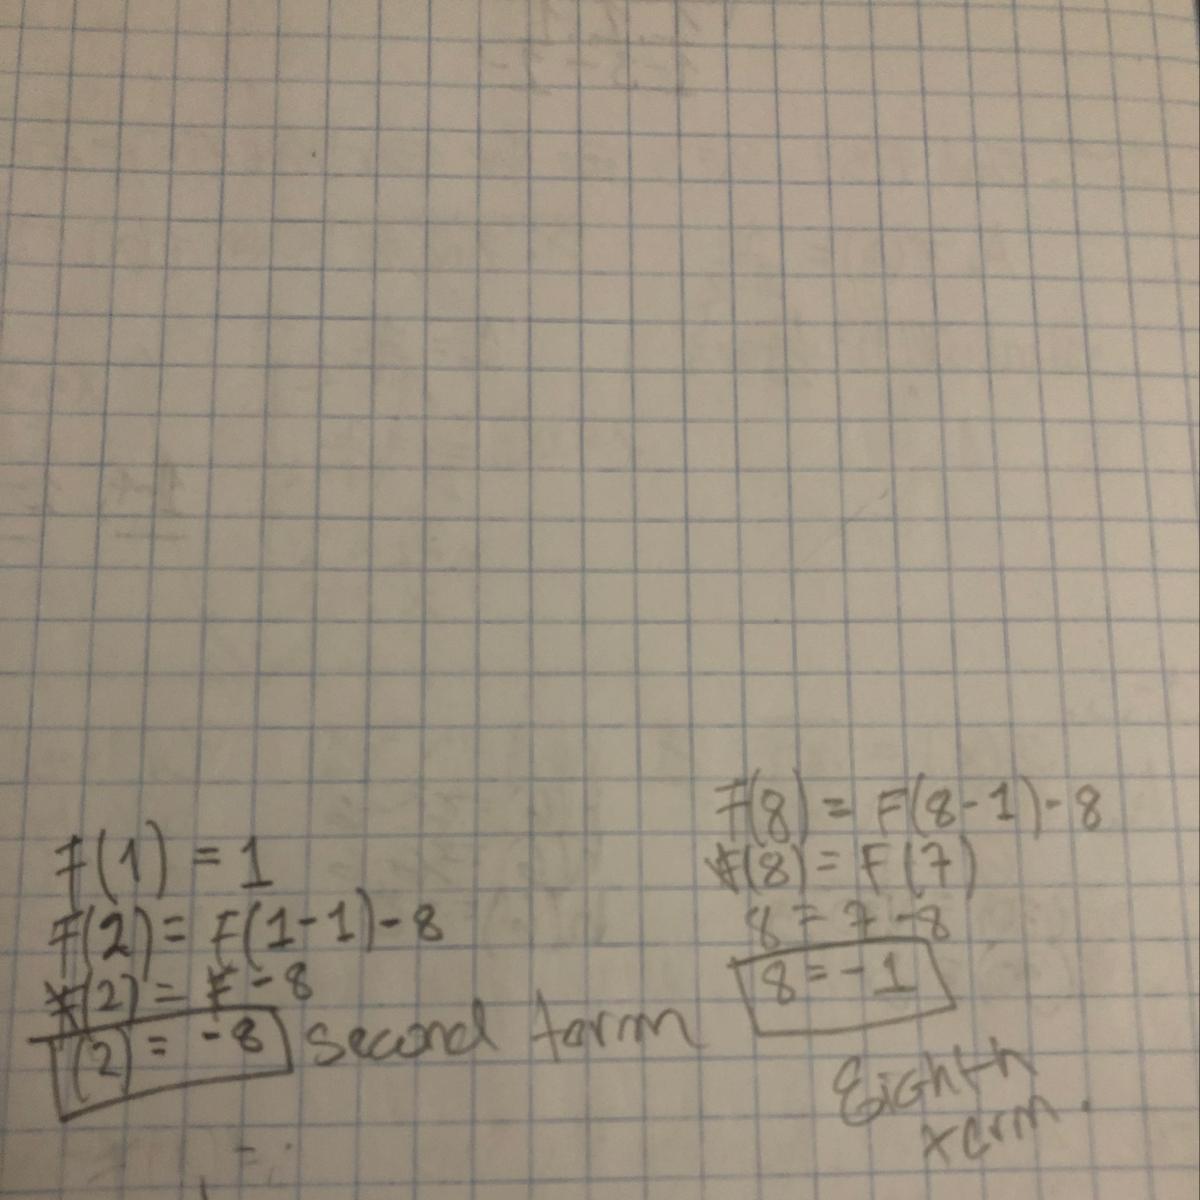 F(1) = 1
F(2) = F(1-1)-8
F(2) = F -8
(2) = -8 second term
F(8) = F(8-1)-8
F(8) = F(7)
8 = 7 -8
8 = -1
Eighth
term.